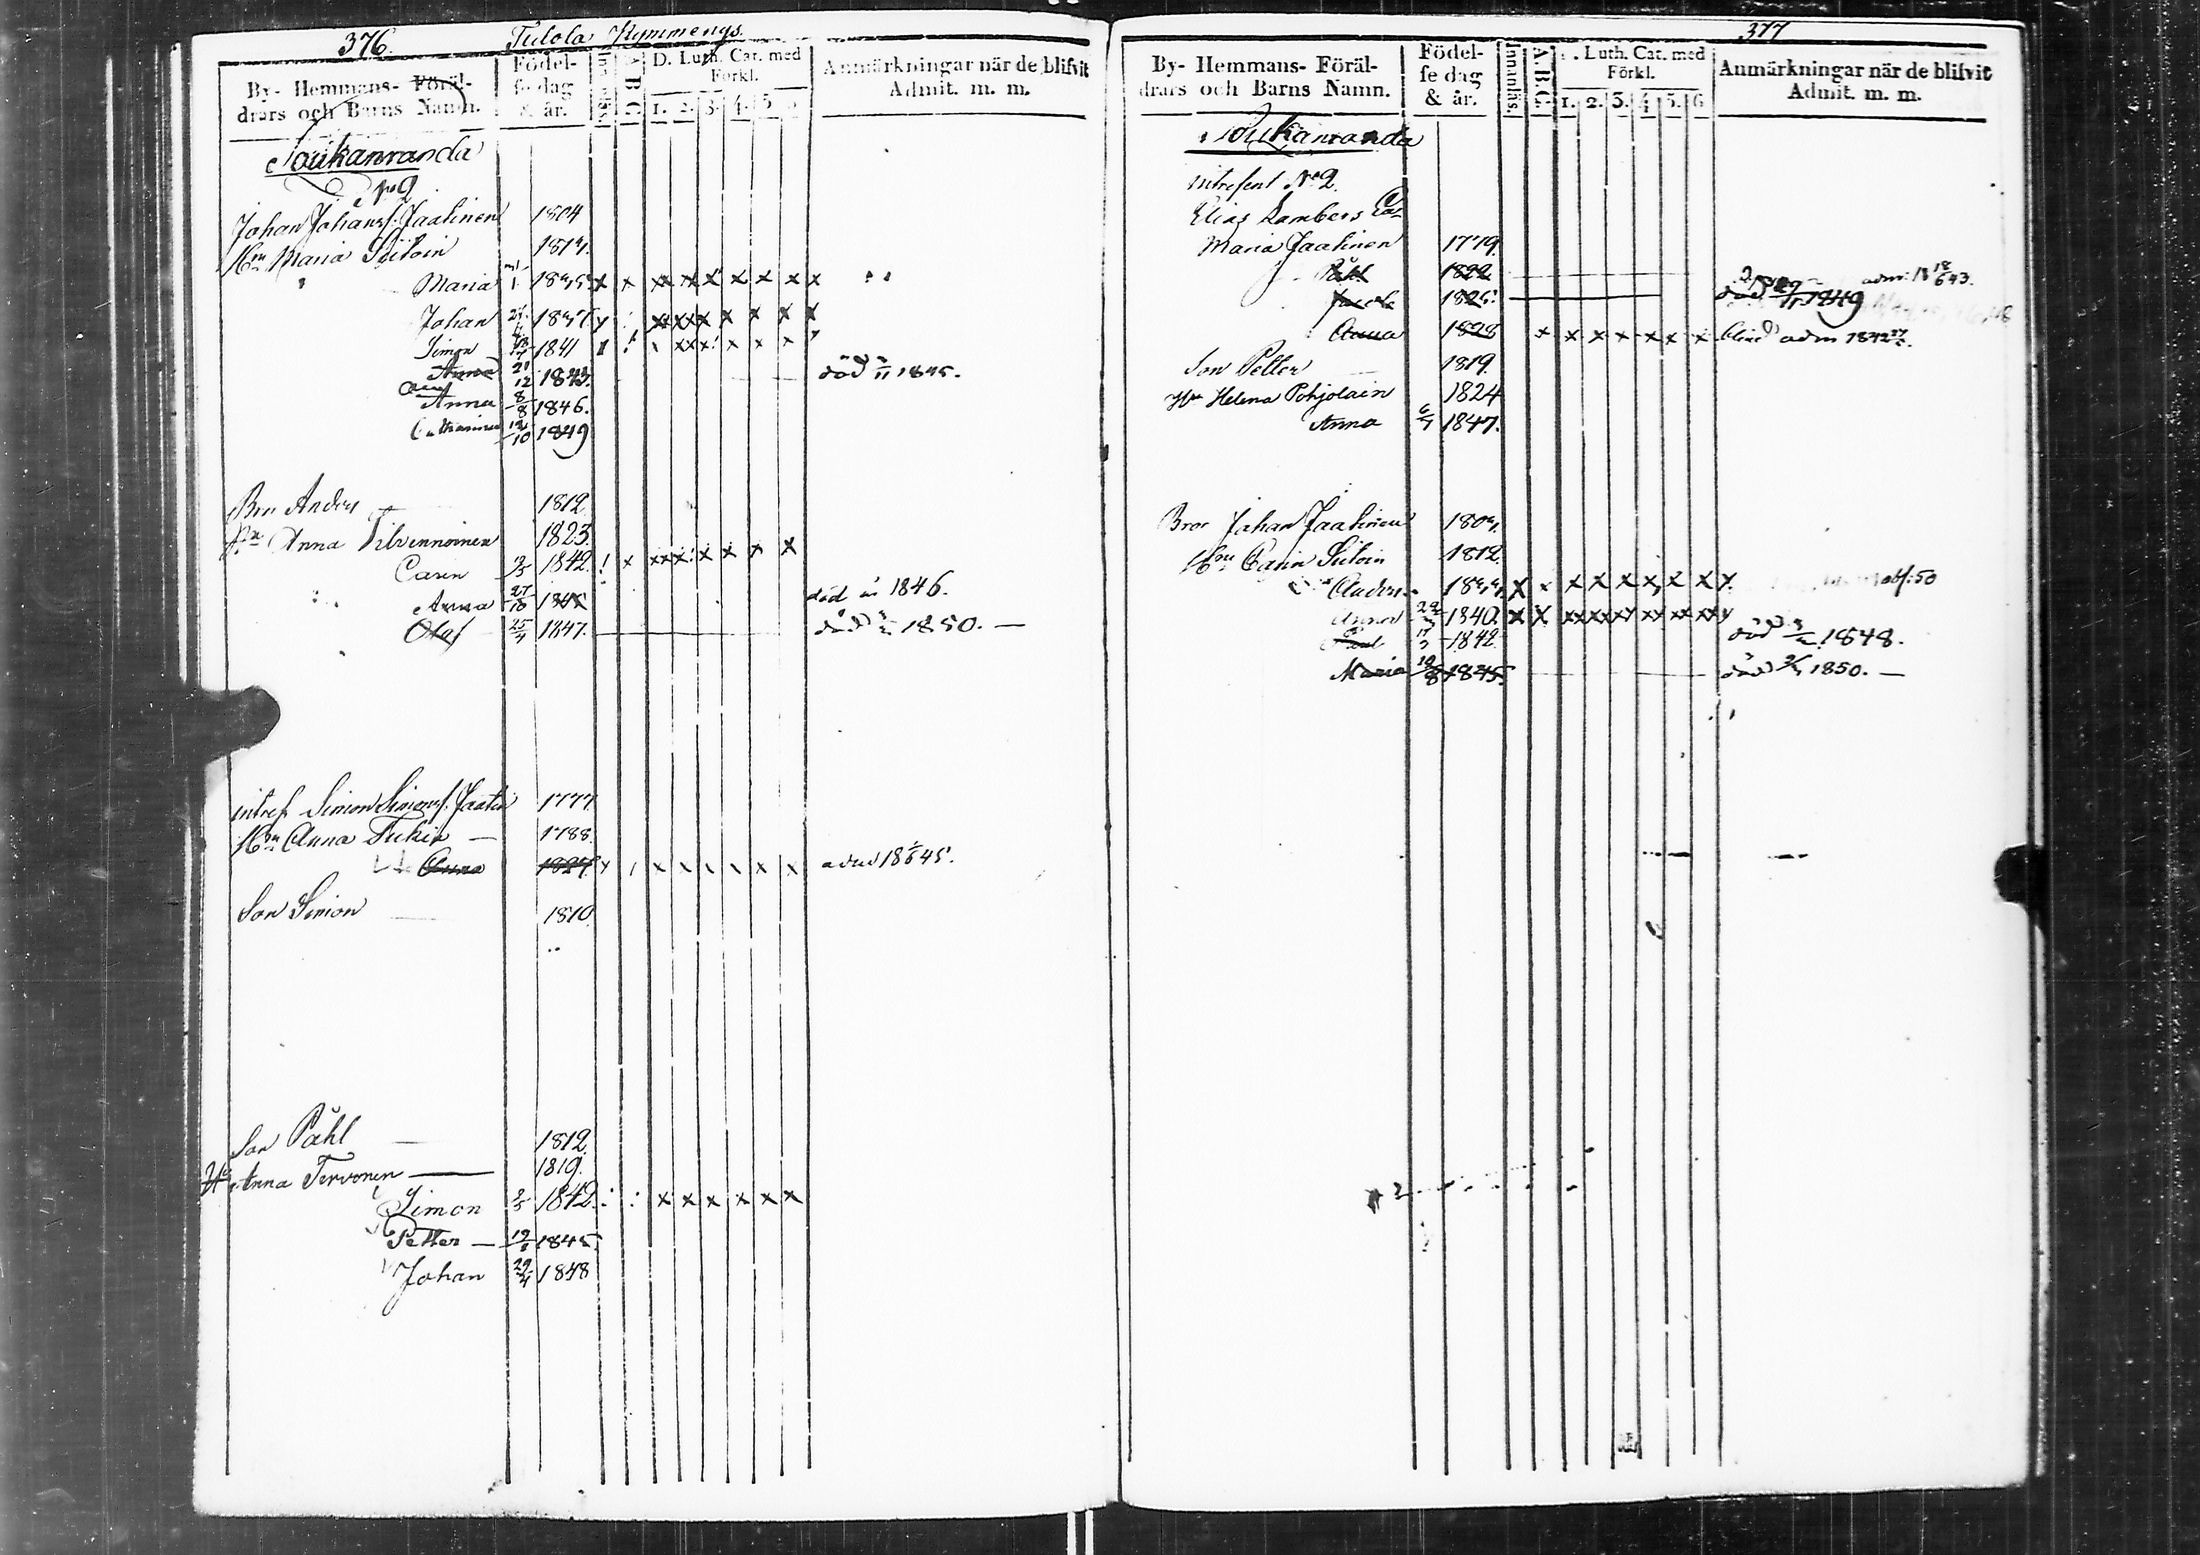 376. Tulola Kymmengs.
By- Hemmans- Föräl-
drars och Barns Namn.
Födel-
se dag
& år.
A B C
D. Luth. Cat. med
Förkl.
1. 2. 3. 4. 5
Anmärkningar när de blifvit
Admit. m. m.
Loukanranda
No 2
Johan Johanss. Jaatinen 1804
Hu Maria Suikoin
Maria 1
Johan
Simon 1841
Anna 21/12 1843. död 1845.
Anna 8/8 1846.
Catharina 12/10 1849
Bror Anders 1812
Hu Anna Ilvennoinen 1823.
Caren 1842
Anna 27/10 1845 död 1846.
Olaf 25/4 1847. död 1850. —
intress. Simon Simonss. Jaatin 1777
Hu Anna Tukia — 1788.
Anna 1824 adm 18 45.
Son Simon 1810
Son Påhl 1812
Hu Anna Tervonen 1819.
Simon 1842
Petter — 1845
Johan 29/4 1848
377
By- Hemmans- Föräl-
drars och Barns Namn.
Födel-
se dag
& år.
Innanläs.
A.B.C.
. Luth. Cat. med
Förkl.
1. 2. 3. 4 5. 6
Anmärkningar när de blifvit
Admit. m. m.
Loukanranda
intresent No 2.
Elias Lambers
Maria Jaatinen 1779
Påhl 1822 adm: 18 18/6 43.
Jacob 1825 död 1849
Anna 1828 blind adm 1842
Son Petter 1819.
Hu Helena Pohjolain 1824
Anna 1847.
Bror Johan Jaatinen
Hu Carin Suikoin 1812.
Anders :50
Anna 1840.
1842 död 1848.
Maria 1845. död 1850. —